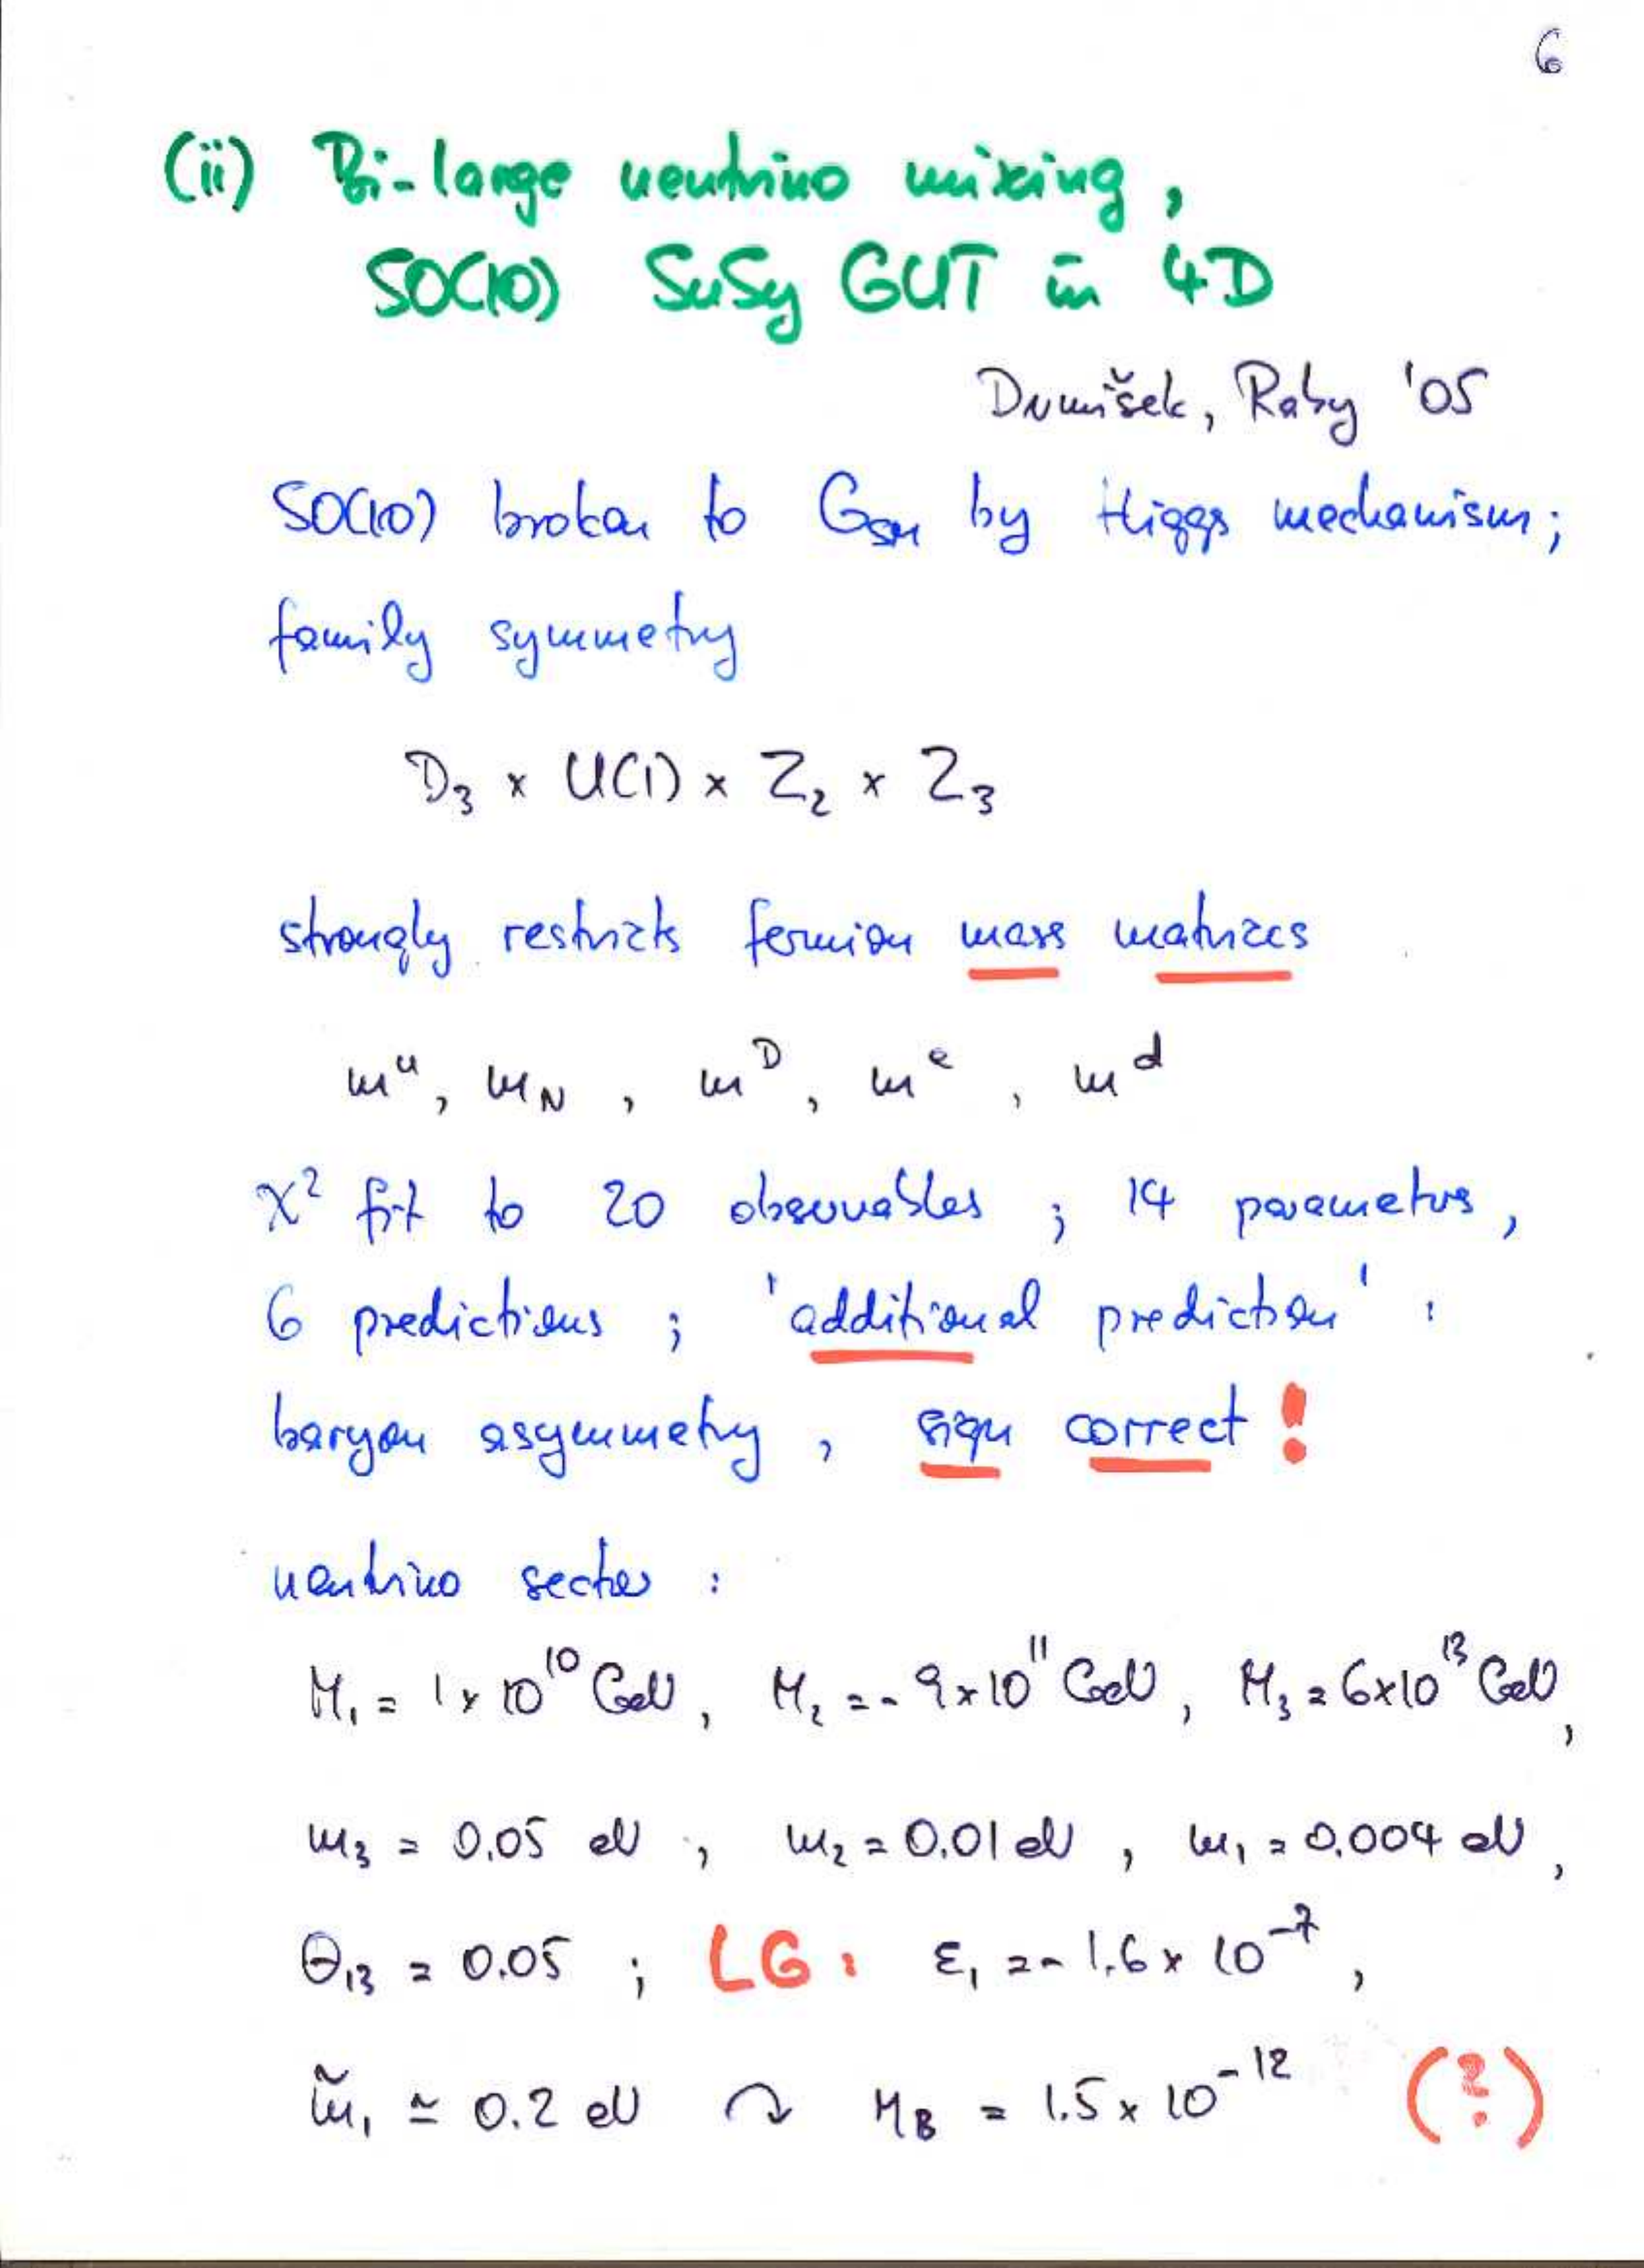 6
(ii) Bi-large neutrino mixing,
SO(10) SuSy GUT in 4D
Dermíšek, Raby '05
SO(10) broken to G_SM by Higgs mechanism;
family symmetry
D₃ × U(1) × Z₂ × Z₃
strongly restricts fermion mass matrices
mᵘ, m_N, mᴰ, mᵉ, mᵈ
χ² fit to 20 observables ; 14 parameters,
6 predictions ; 'additional prediction' :
baryon asymmetry, sign correct !
neutrino sector :
M₁ = 1 × 10¹⁰ GeV, M₂ = - 9 × 10¹¹ GeV, M₃ = 6 × 10¹³ GeV,
m₃ = 0.05 eV, m₂ = 0.01 eV, m₁ = 0.004 eV,
θ₁₃ = 0.05 ; LG : ε₁ = - 1.6 × 10⁻⁷,
m̃₁ ≃ 0.2 eV ↷ η_B = 1.5 × 10⁻¹² (?)